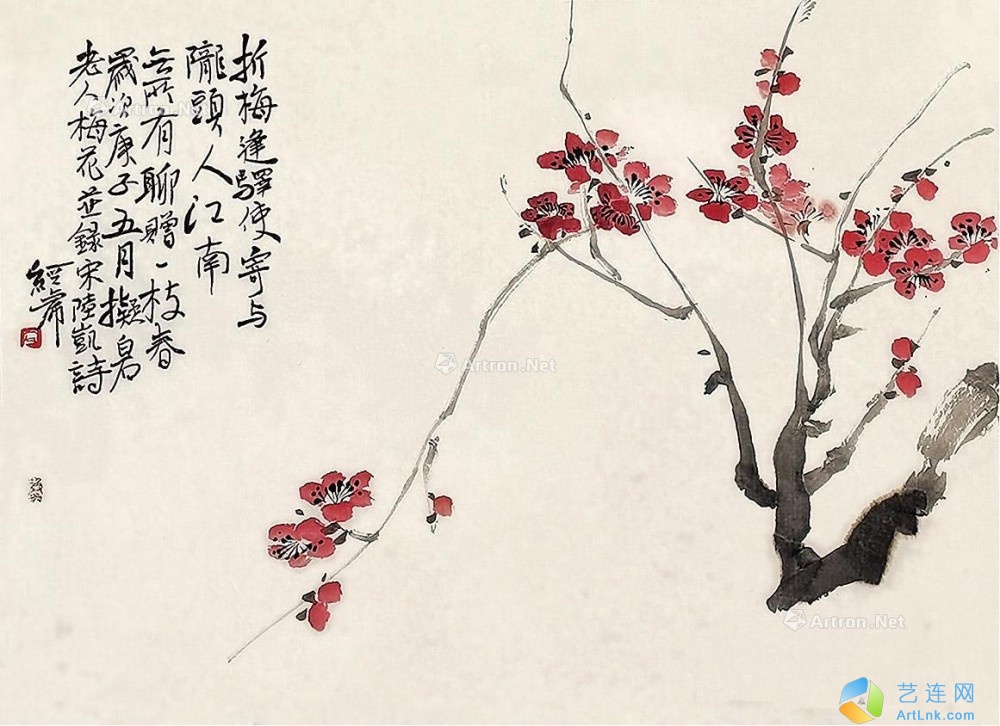 折梅逢驛使寄与
隴頭人江南
无所有聊贈一枝春
歲次庚子五月擬白石
老人梅花並錄宋陸凱詩
Artron.Net
Artron.Net
艺连网
ArtLnk.com